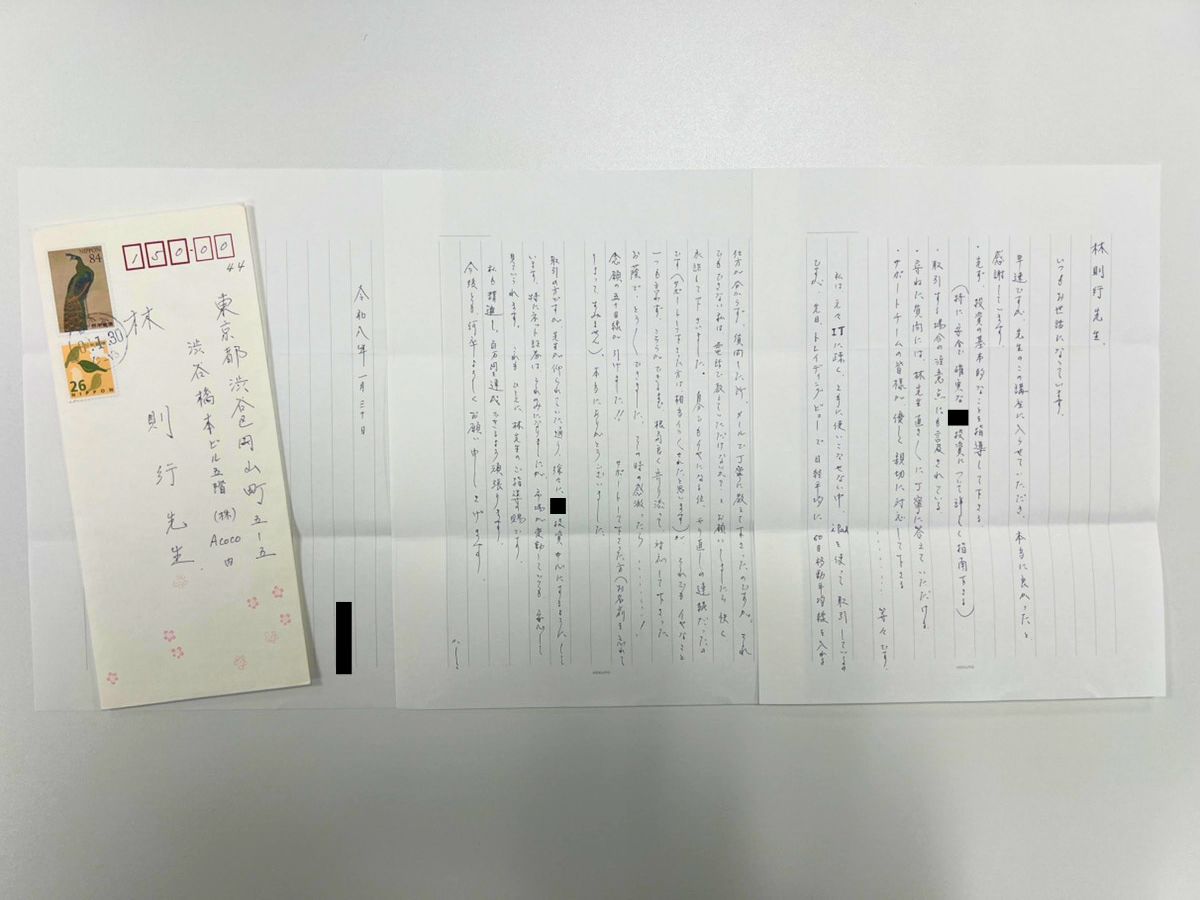 林則行先生、
いつもお世話になっています。
早速ですが、先生のこの講座に入らせていただき、本当に良かったと
感謝しています。
・先ず、投資の基本的なことを指導して下さる
（特に安全で確実な 投資について詳しく指南下さる）
取引する場合の注意点にも言及されている
・尋ねた質問には、林先生直々に丁寧に答えていただける
・サポートチームの皆様が優しく親切に対応して下さる
………等々です。
私は元々ITに疎く、ともに使いこなせない中、iPadを使って取引しているの
ですが、先日、トレイディングビューで日経平均に60日移動平均線を入れる
仕方が分からず、質問した所、メールで丁寧に教えて下さったのですが、それ
でもできない私は お電話で教えていただけないか？とお願いしましたら快く
承諾して下さいました。自分でもイヤになる位、やり直しの連続だったの
です（サポートして下さる方は相当イラッとされたと思います）が、それでもイヤなこと
一つも言わず、こちらができるまで根気良く寄り添って、対応して下さった
お蔭で、とうとうできました。その時の感激ったら………！
念願の五十日線が引けました!! サポートして下さった方（お名前を忘れて
しまってすみません）本当にありがとうございました。
取引の方ですが、先生が仰られていた通り、徐々に 投資中心にするようにして
います。特にネット証券は
見ていられます。これもひとえに林先生のご指導の賜です。
私も精進し、百万円を達成できるよう頑張ります。
今後とも、何卒よろしくお願い申し上げます。
かしこ
令和八年一月三十日
NIPPON 84
26 NIPPON
150-00
44
東京都渋谷区円山町五ー五
渋谷橋本ビル五階
(株)Acoco内
林則行先生